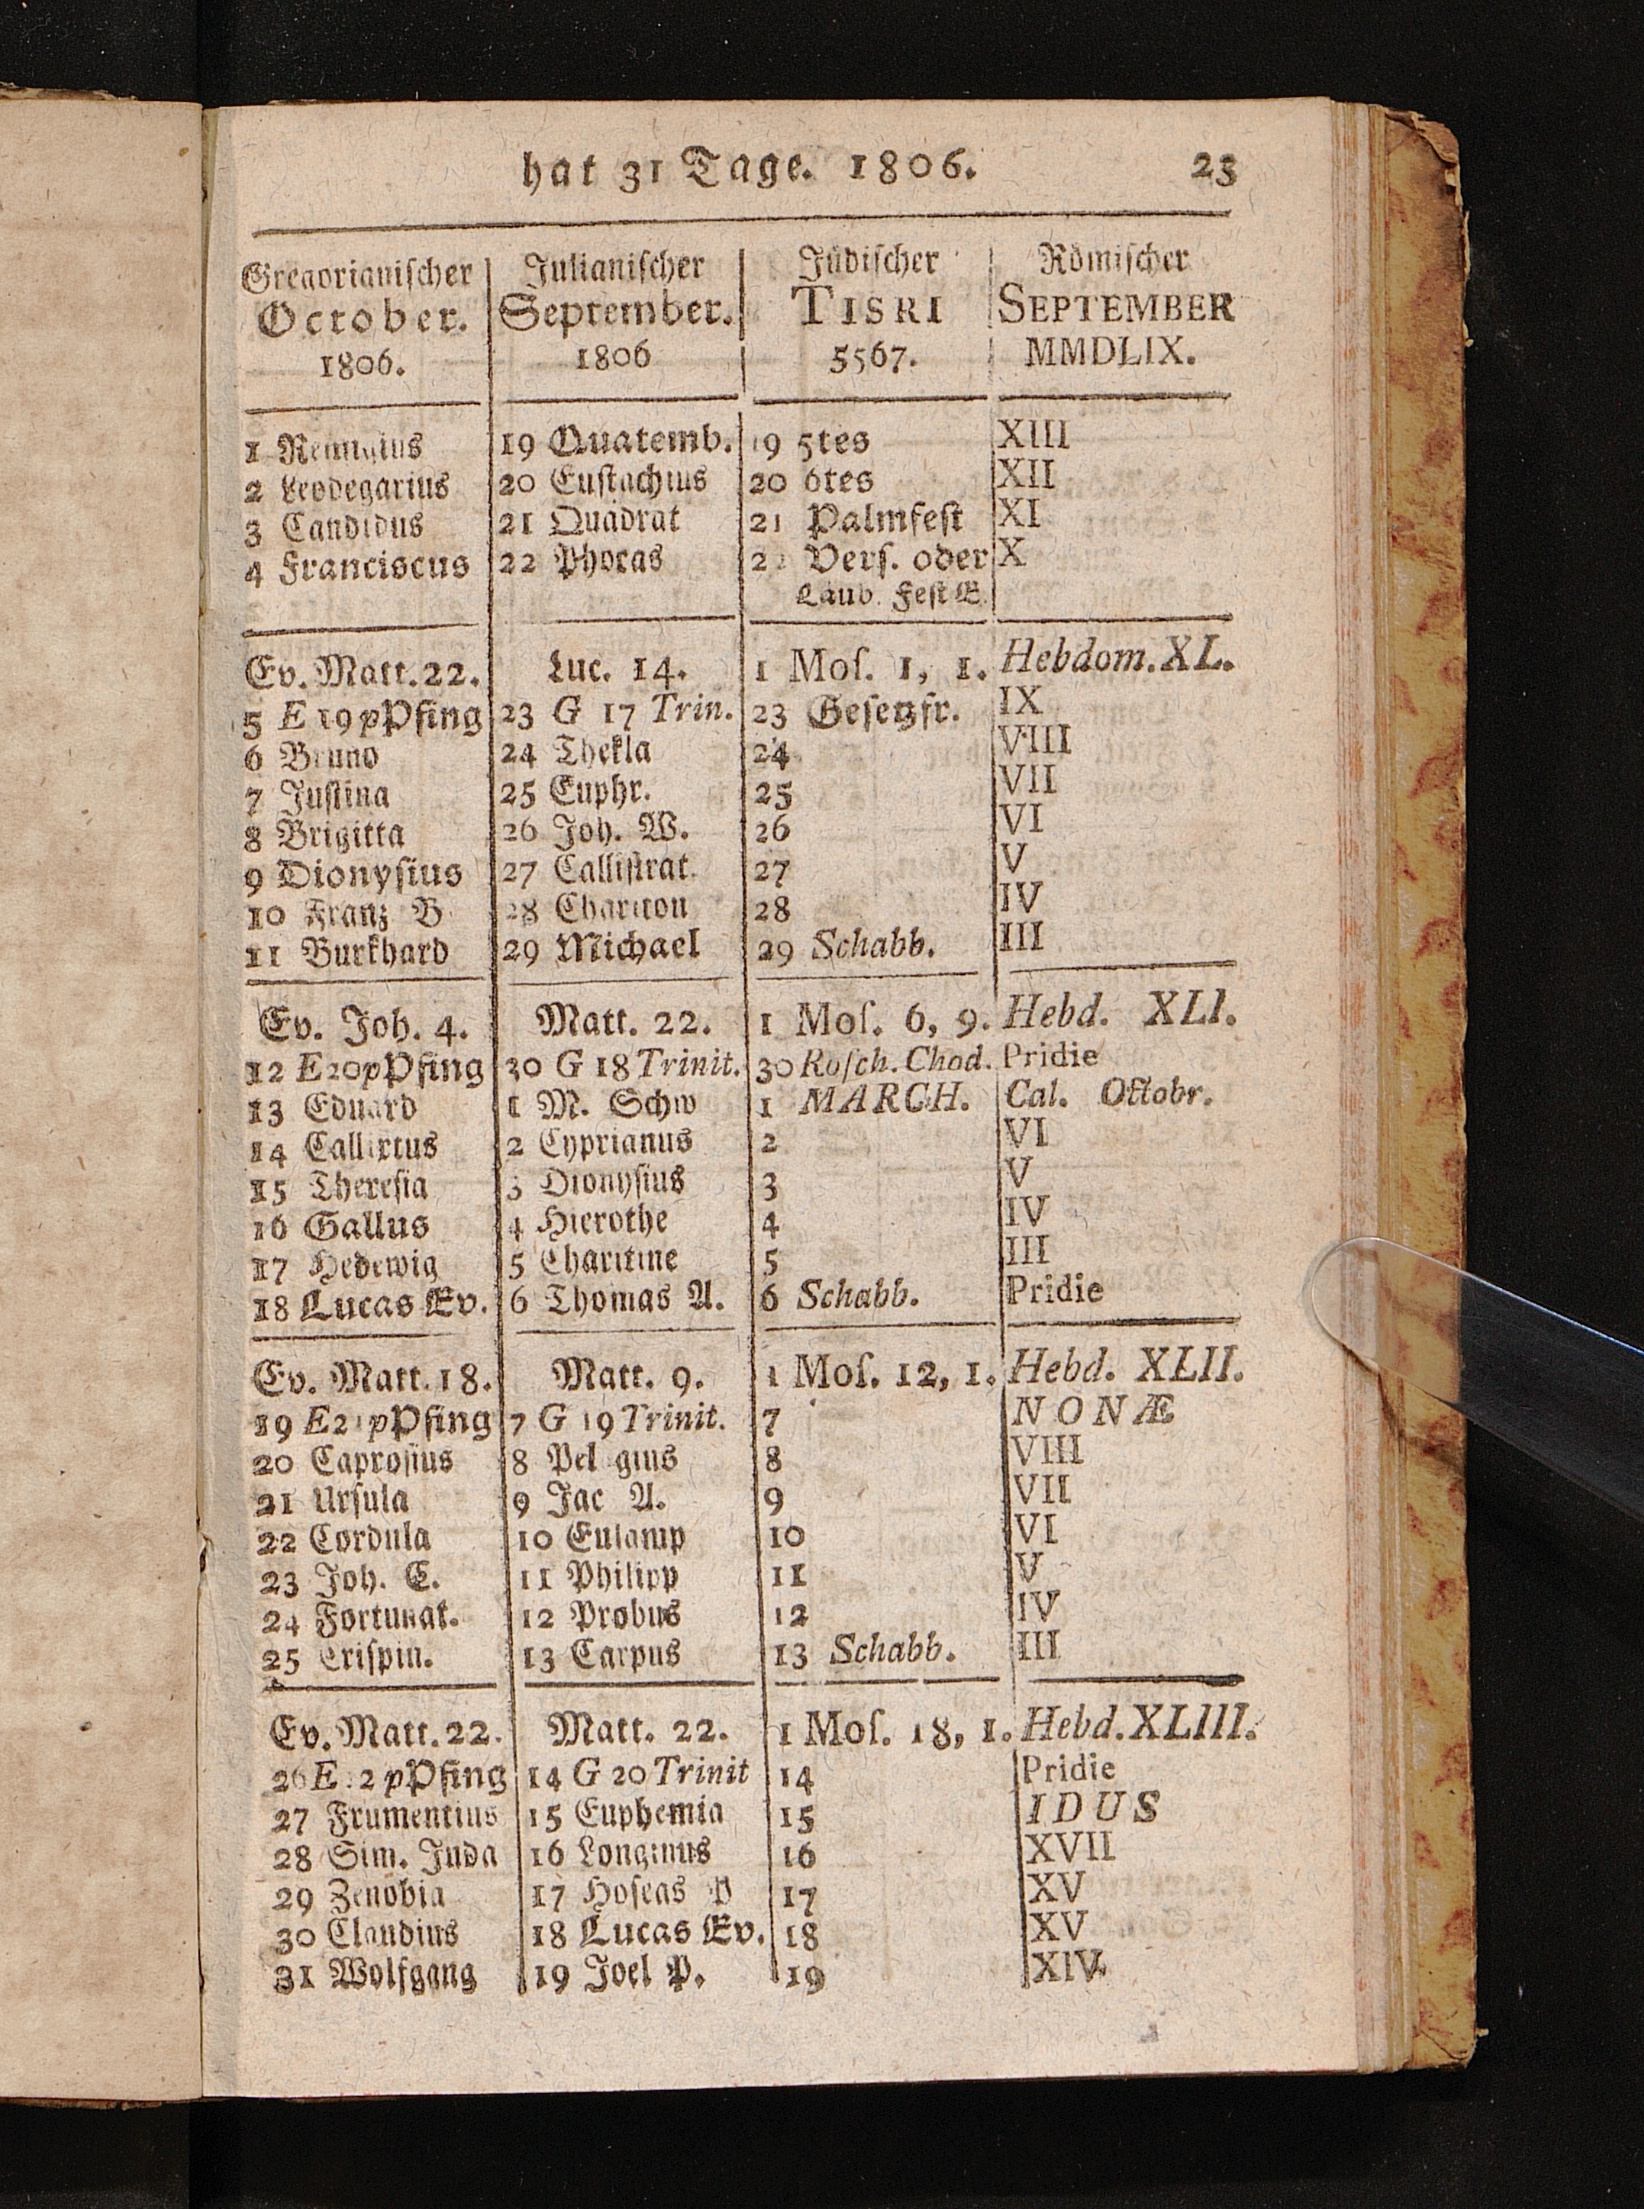 hat 31 Tage. 1806. 23
Gregorianischer Julianischer Jüdischer Römischer
October. September. TISRI SEPTEMBER
1806. 1806 5567. MMDLIX.
1 Remigius 19 Quatemb. 19 5tes XIII
2 Leodegarius 20 Eustachius 20 6tes XII
3 Candidus 21 Quadrat 21 Palmfest XI
4 Franciscus 22 Phocas 22 Vers. oder X
Laub. Fest E.
Ev. Matt. 22. Luc. 14. 1 Mos. 1, 1. Hebdom. XL.
5 E 19 pPfing 23 G 17 Trin. 23 Gesetzfr. IX
6 Bruno 24 Thekla 24 VIII
7 Justina 25 Euphr. 25 VII
8 Brigitta 26 Joh. W. 26 VI
9 Dionysius 27 Callistrat. 27 V
10 Franz B 28 Chariton 28 IV
11 Burkhard 29 Michael 29 Schabb. III
Ev. Joh. 4. Matt. 22. 1 Mos. 6, 9. Hebd. XLI.
12 E20pPfing 30 G 18 Trinit. 30 Rosch. Chod. Pridie
13 Eduard 1 M. Schw 1 MARCH. Cal. Octobr.
14 Callixtus 2 Cyprianus 2 VI
15 Theresia 3 Dionysius 3 V
16 Gallus 4 Hierothe 4 IV
17 Hedewig 5 Charitine 5 III
18 Lucas Ev. 6 Thomas A. 6 Schabb. Pridie
Ev. Matt. 18. Matt. 9. 1 Mos. 12, 1. Hebd. XLII.
19 E21pPfing 7 G 19 Trinit. 7 NONÆ
20 Caprosius 8 Pel gius 8 VIII
21 Ursula 9 Jac A. 9 VII
22 Cordula 10 Eulamp 10 VI
23 Joh. C. 11 Philipp 11 V
24 Fortunat. 12 Probus 12 IV
25 Crispin. 13 Carpus 13 Schabb. III
Ev. Matt. 22. Matt. 22. 1 Mos. 18, 1. Hebd. XLIII.
26 E22pPfing 14 G 20 Trinit 14 Pridie
27 Frumentius 15 Euphemia 15 IDUS
28 Sim. Juda 16 Longinus 16 XVII
29 Zenobia 17 Hoseas P 17 XV
30 Claudius 18 Lucas Ev. 18 XV
31 Wolfgang 19 Joel P. 19 XIV